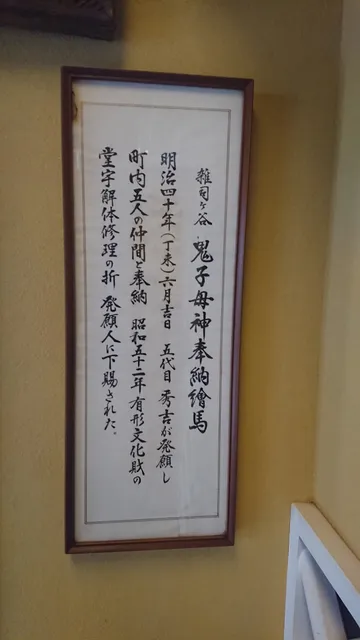 雑司ヶ谷 鬼子母神奉納繪馬
明治四十年(丁未)六月吉日 五代目 秀吉が発願し
町内五人の仲間と奉納 昭和五十二年有形文化財の
堂宇解体修理の折 発願人に下賜された。